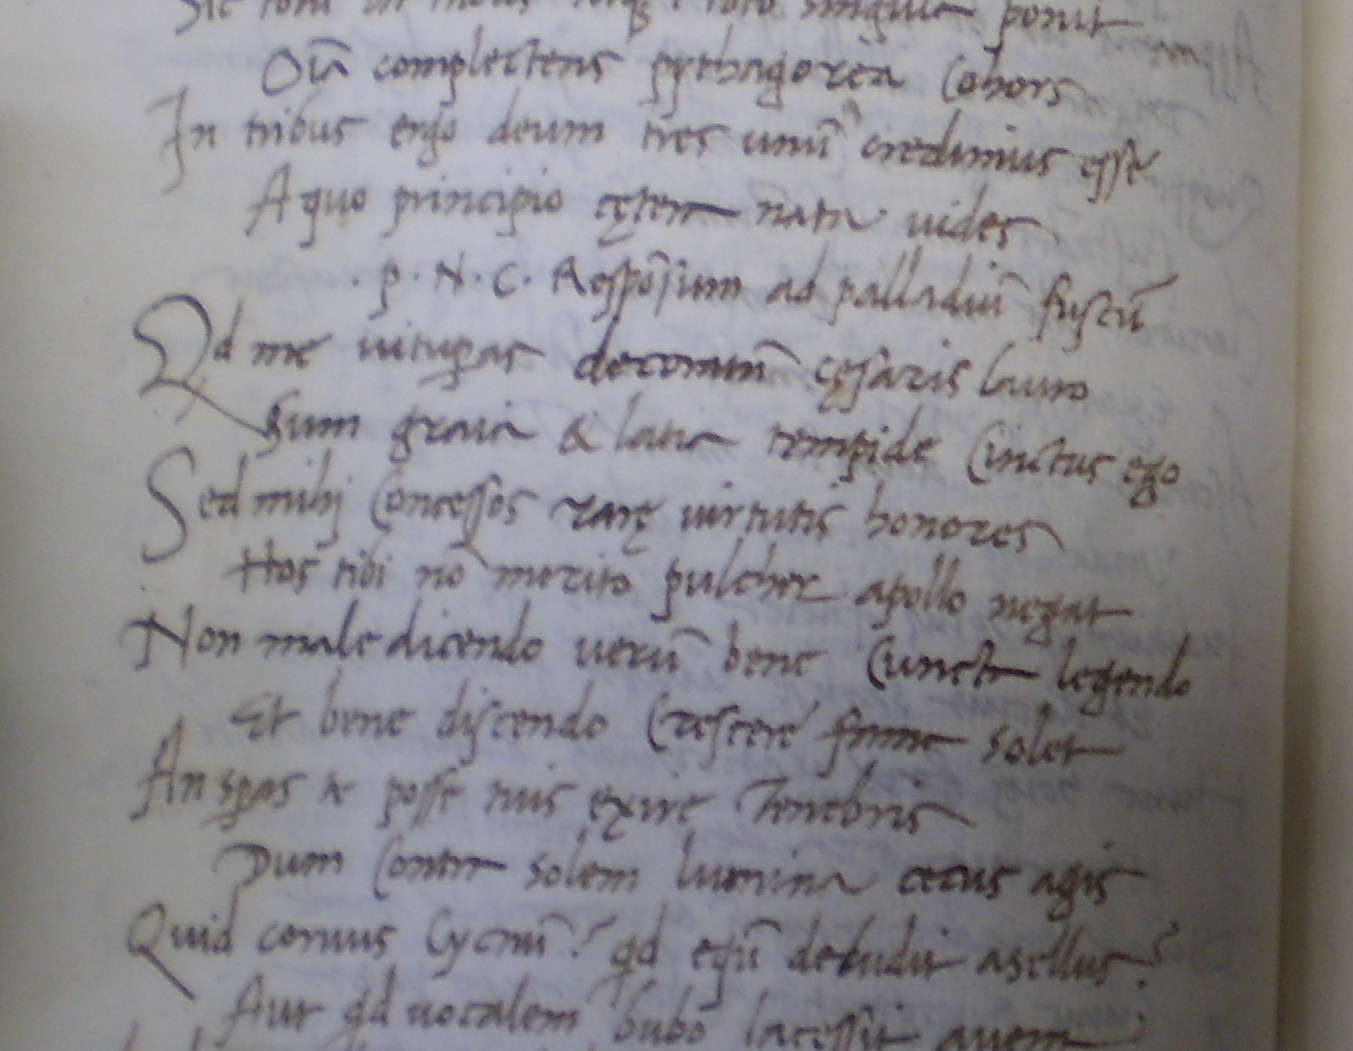 Sic totu in tribus singula ponit
Oīa complectens pythagorea Cohors
In tribus ergo deum tres unū credimus esse
A quo principio cętera nata uides
. P. N. C. Respōsium ad palladiū fuscū
Qd me uitupas decoratū cęsaris lauro
Sum graia & latia tempide Cinctus ego
Sed mihj Concessos rarę uirtutis honores
Hos tibi nō merito pulcher apollo negat
Non male dicendo uerū bene Cuncta legendo
Et bene discendo Crescere fama solet
An spas te posse tuis exire Tenebris
Dum Contra solem lumina cecus agis
Quid coruus Cycnū? qd eqū deludit asellus?
Aut qd uocalem bubo lacessit auem